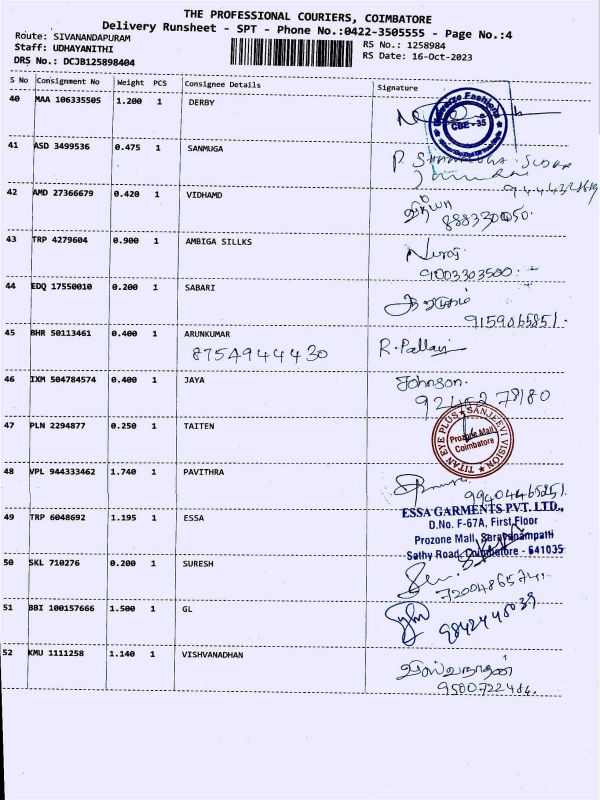 THE PROFESSIONAL COURIERS, COIMBATORE
Delivery Runsheet - SPT - Phone No.:0422-3505555 - Page No.:4
Route: SIVANANDAPURAM
RS No.: 1258984
Staff: UDHAYANITHI
RS Date: 16-Oct-2023
DRS No.: DCJB125898404
S No Consignment No Weight PCS Consignee Details Signature
40 MAA 106335505 1.200 1 DERBY
CBE - 35
41 ASD 3499536 0.475 1 SANMUGA
42 AMD 27366679 0.420 1 VIDHAMD
வித்யா
43 TRP 4279604 0.900 1 AMBIGA SILLKS
9003303500
44 EDQ 17550010 0.200 1 SABARI
9159865851
45 BHR 50113461 0.400 1 ARUNKUMAR R.Pallavi
8754944430
46 IXM 504784574 0.400 1 JAYA Johnson.
47 PLN 2294877 0.250 1 TAITEN
TITAN EYE PLUS ★ SANJEEVI VISION ★
Prozone Mall
Coimbatore
48 VPL 944333462 1.740 1 PAVITHRA
49 TRP 6048692 1.195 1 ESSA
ESSA GARMENTS PVT. LTD.,
D.No. F-67A, First Floor
Prozone Mall, Saravanampatti
Sathy Road, Coimbatore - 641035
50 SKL 710276 0.200 1 SURESH
51 BBI 100157666 1.500 1 GL
52 KMU 1111258 1.140 1 VISHVANADHAN
விஸ்வநாதன்
9500722484.